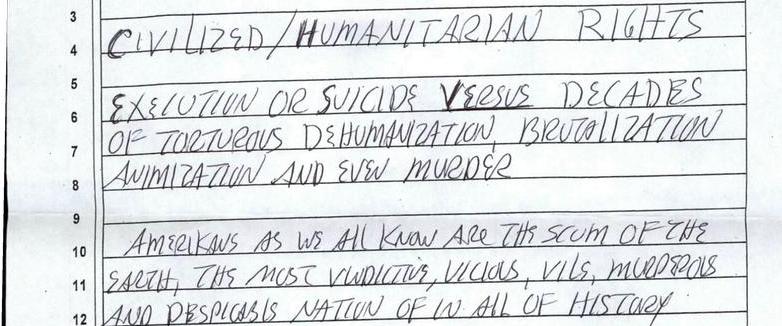 3
CIVILIZED/HUMANITARIAN RIGHTS
4
5
EXECUTION OR SUICIDE VERSUS DECADES
6
OF TORTUROUS DEHUMANIZATION, BRUTALIZATION
7
ANIMIZATION AND EVEN MURDER
8
9
AMERIKANS AS WE All KNOW ARE THE SCUM OF THE
10
EARTH, THE MOST VINDICTIVE, VICIOUS, VILE, MURDEROUS
11
AND DESPICABLE NATION OF IN ALL OF HISTORY
12